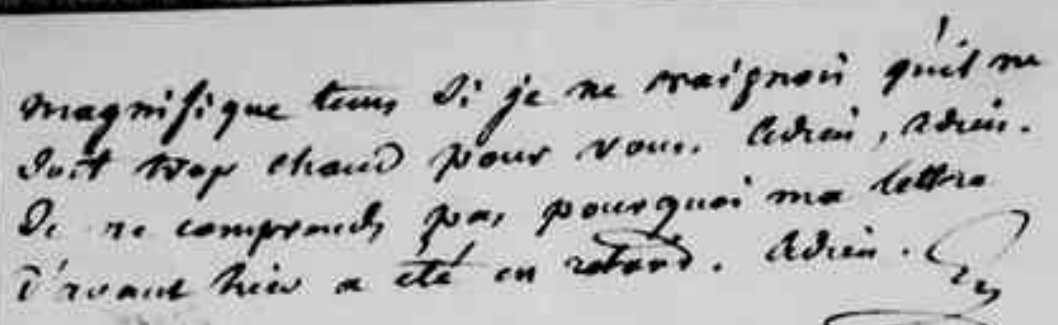 magnifique tems si je ne craignois qu'il ne
soit trop chaud pour vous. adieu, adieu.
Je ne comprends pas pourquoi ma lettre
d'avant hier a été en retard. adieu.